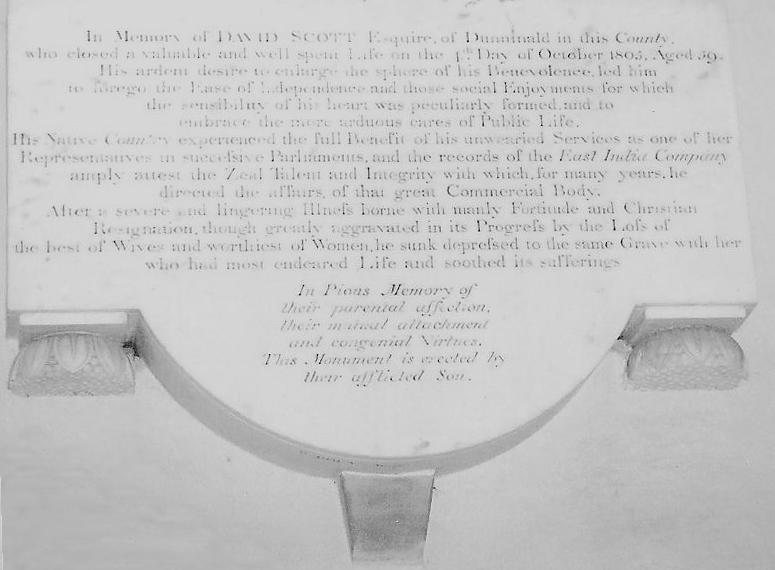 In Memory of DAVID SCOTT Esquire, of Dunninald in this County,
who closed a valuable and well spent Life on the 4th Day of October 1805, Aged 59.
His ardent desire to enlarge the sphere of his Benevolence, led him
to forego the Ease of Independence and those social Enjoyments for which
the sensibility of his heart was peculiarly formed, and to
embrace the more arduous cares of Public Life.
His Native Country experienced the full Benefit of his unwearied Services as one of her
Representatives in succeſsive Parliaments, and the records of the East India Company
amply attest the Zeal Talent and Integrity with which, for many years, he
directed the affairs, of that great Commercial Body.
After a severe and lingering Illneſs borne with manly Fortitude and Christian
Resignation, though greatly aggravated in its Progreſs by the Loſs of
the best of Wives and worthiest of Women, he sunk depreſsed to the same Grave with her
who had most endeared Life and soothed its sufferings
In Pious Memory of
their parental affection,
their mutual attachment
and congenial Virtues,
This Monument is erected by
their afflicted Son.